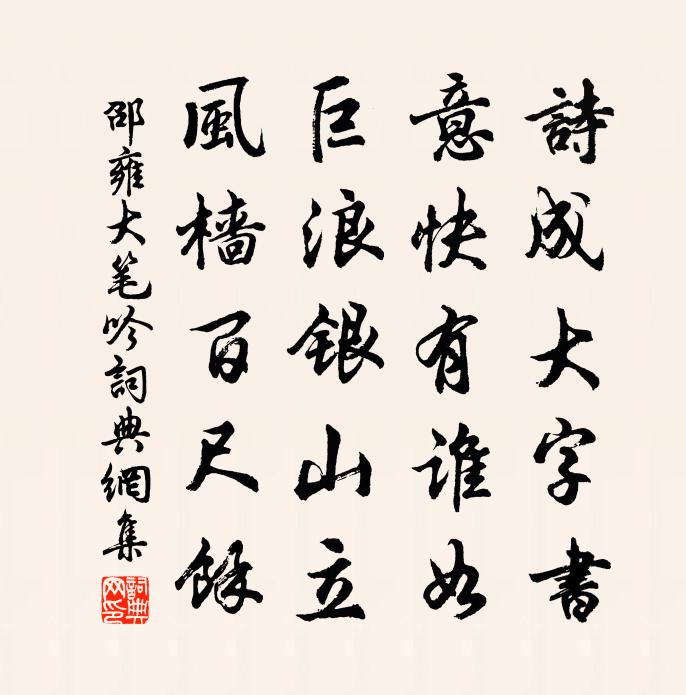 詩成大字書
意快有誰如
巨浪銀山立
風檣百尺餘
邵雍大笔吟詞典網集
詞典網印